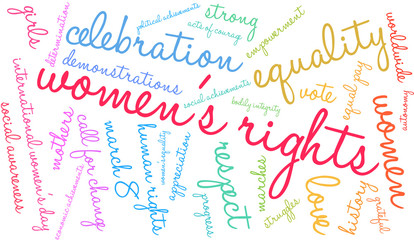 political achievements
strong
acts of courag
empowerment
girls
determination
celebration
equality
worldwide
demonstrations
social achievements
bodily integrity
vote
equal pay
autonomy
women's rights
women
international women's day
social awareness
mothers
economic achievements
call for change
march 8
human rights
women equality
appreciation
progress
respect
marches
struggles
love
history
grateful